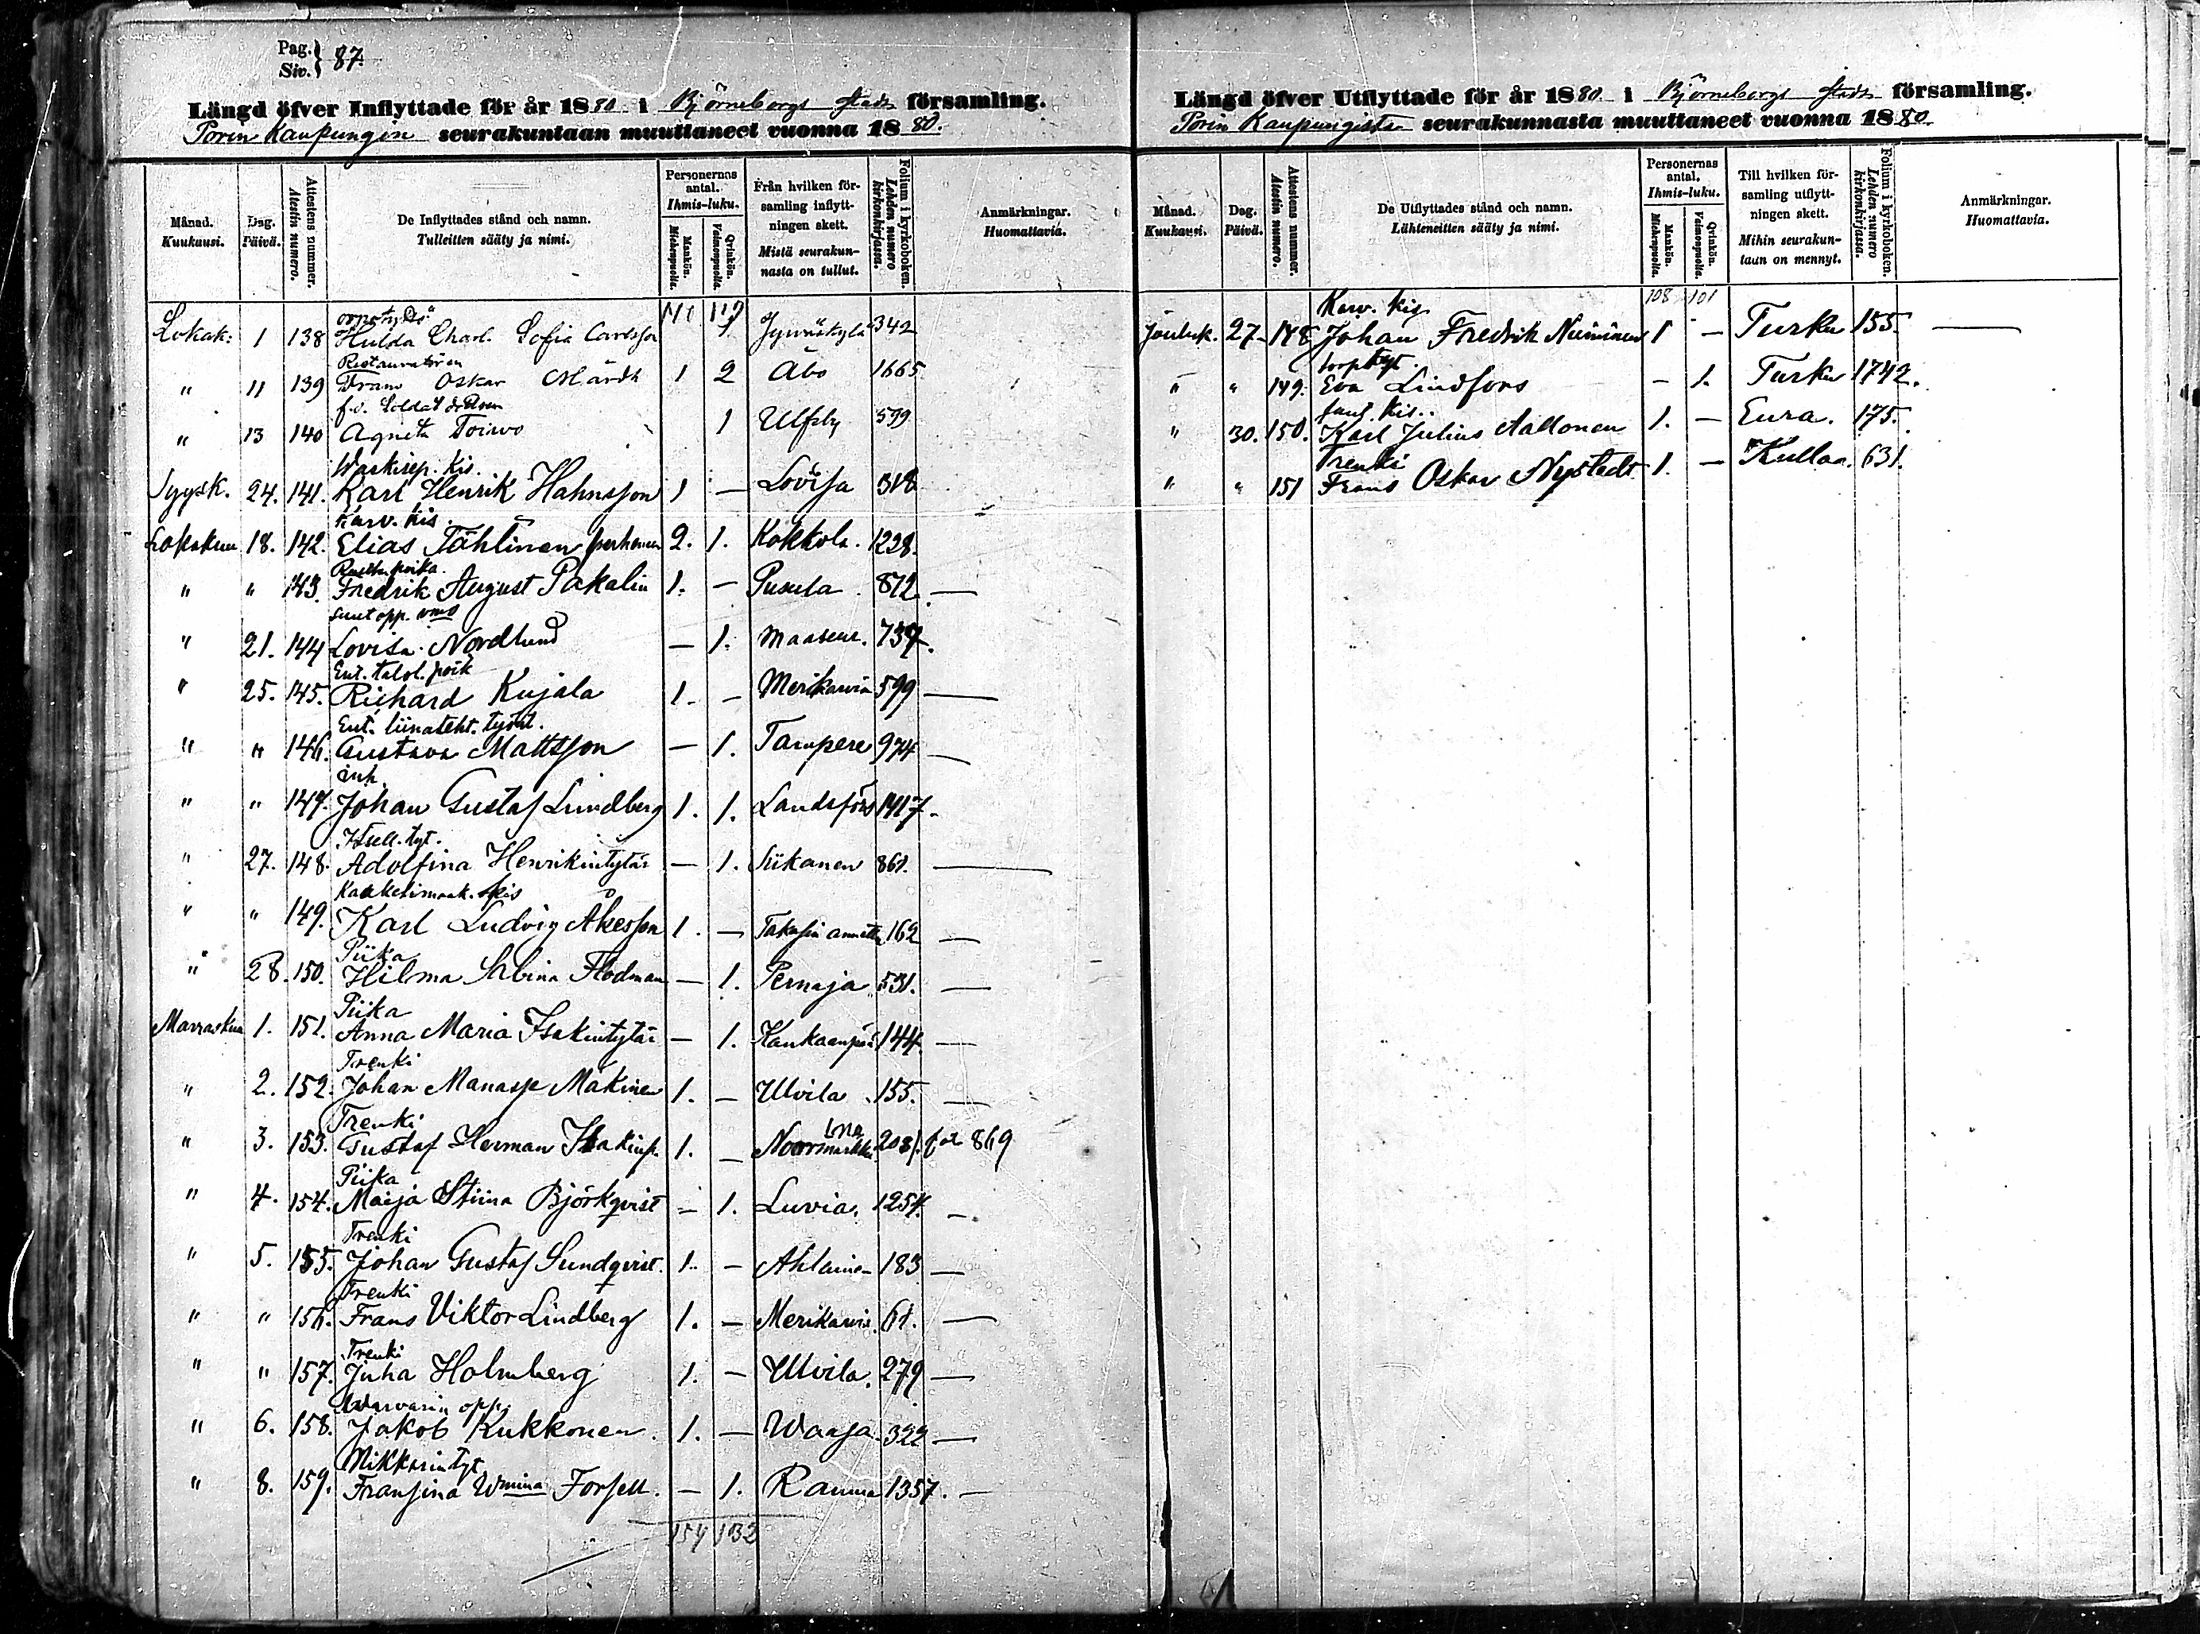 Pag. Siv. } 87.
Längd öfver Inflyttade för år 1880 i Björneborgs stads församling.
Porin Kaupungin seurakuntaan muuttaneet vuonna 1880.
Månad. Kuukausi.
Dag. Päivä.
Attestens nummer. Atestin numero.
De Inflyttades stånd och namn. Tulleitten sääty ja nimi.
Personernas antal. Ihmis-luku.
Mankön. Miehenpuolia.
Qvinkön. Vaimonpuolia.
Från hvilken församling inflyttningen skett. Mistä seurakunnasta on tullut.
Folium i kyrkoboken. Lehden numero kirkonkirjassa.
Anmärkningar. Huomattavia.
Lokak: 1 138 Hulda Charl. Sofia Carlsson 1 Jyväskylä 342
Restauratören
" 11 139 Frans Oskar Mårdh 1 2 Åbo 1665
f.d. Soldat
" 13 140 Agneta Toivo 1 Ulfsby 599
Waskisep. Kis.
Syysk. 24. 141. Karl Henrik Hahnsson 1 — Lovisa 318
Karv. Kis.
Lokakuu 18. 142. Elias Tählinen perheineen 2. 1. Kokkola. 1228.
poika.
" " 143. Fredrik August Pakalin 1. — Pusula. 872. —
Suut opp. vmo
" 21. 144 Lovisa Nordlund — 1. Maaseur. 737.
Ent. talol. poik
" 25. 145. Richard Kujala 1. — Merikarvia 599 —
Ent. liinateht. työnt.
" " 146. Gustava Mattsson — 1. Tampere 974 —
" " 147. Johan Gustaf Lundberg 1. 1. Landsförs 1417.
Itsell. tyt.
" 27. 148. Adolfina Henrikintytär — 1. Siikanen 861. —
Kaakelimaak. kis
" " 149. Karl Ludvig Åkesson 1. — Takasin annettu 162 —
Piika
" 28. 150. Hilma Sabina Flodman — 1. Pernaja 531. —
Piika
Marraskuu 1. 151. Anna Maria Isakintytär — 1. Kankaanpää 144. —
Trenki
" 2. 152. Johan Manasse Mäkinen 1. — Ulvila 155. —
Trenki
" 3. 153. Gustaf Herman Isakinp. 1. — Noormarkku 208 869
Piika
" 4. 154. Maija Stiina Björkqvist — 1. Luvia. 1254. —
Trenki
" 5. 155. Johan Gustaf Sundqvist. 1. — Ahlainen 183 —
Trenki
" " 156. Frans Viktor Lindberg 1. — Merikarvia 61. —
Trenki
" " 157. Juha Holmberg 1. — Ulvila. 279 —
Warvarin opp.
" 6. 158. Jakob Kukkonen. 1. — Waasa. 322 —
Nikkarin tyt
" 8. 159. Fransina Wmina Forsell. — 1. Rauma 1357. —
154 132
Längd öfver Utflyttade för år 1880 i Björneborgs stads församling.
Porin Kaupungista seurakunnasta muuttaneet vuonna 1880
Månad. Kuukausi.
Dag. Päivä.
Attestens nummer. Atestin numero.
De Utflyttades stånd och namn. Lähteneitten sääty ja nimi.
Personernas antal. Ihmis-luku.
Mankön. Miehenpuolia.
Qvinkön. Vaimonpuolia.
Till hvilken församling utflyttningen skett. Mihin seurakuntaan on mennyt.
Folium i kyrkoboken. Lehden numero kirkonkirjassa.
Anmärkningar. Huomattavia.
108 101
Karv. kis
Jouluk. 27. 148 Johan Fredrik Nieminen 1 — Turku 155. —
torp. tyt.
" " 149. Eva Lindfors — 1. Turku 1742.
kis.
" 30. 150. Karl Julius Aaltonen 1. — Eura. 175.
Trenki
" " 151 Frans Oskar Nystedt 1. — Kullaa. 631.